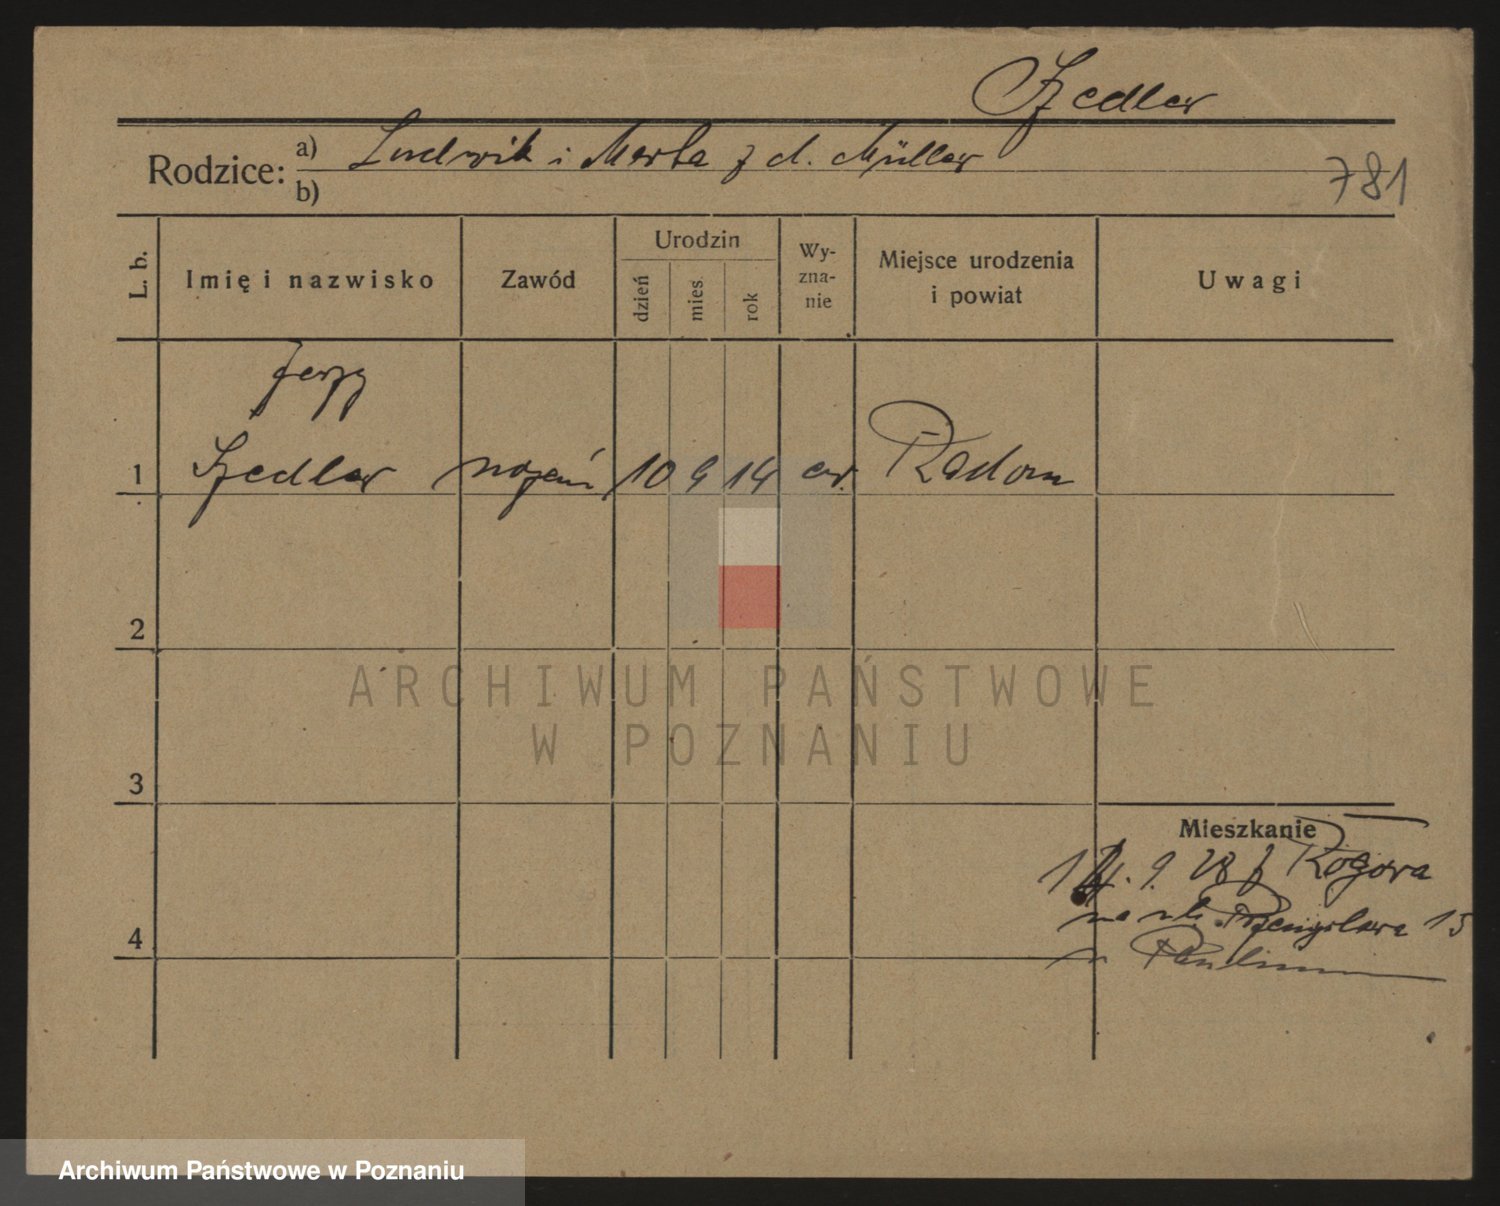 Szedler
Rodzice: a) Ludwik i Marta z d. Müller
b)
781
L. b. Imię i nazwisko Zawód Urodzin dzień mies rok Wyznanie Miejsce urodzenia i powiat Uwagi
Jerzy
1 Szedler 10 9 14 ew. Radom
2
3
Mieszkanie
9. 28 z
na ul. Przemysława 15
4
ARCHIWUM PAŃSTWOWE
W POZNANIU
Archiwum Państwowe w Poznaniu